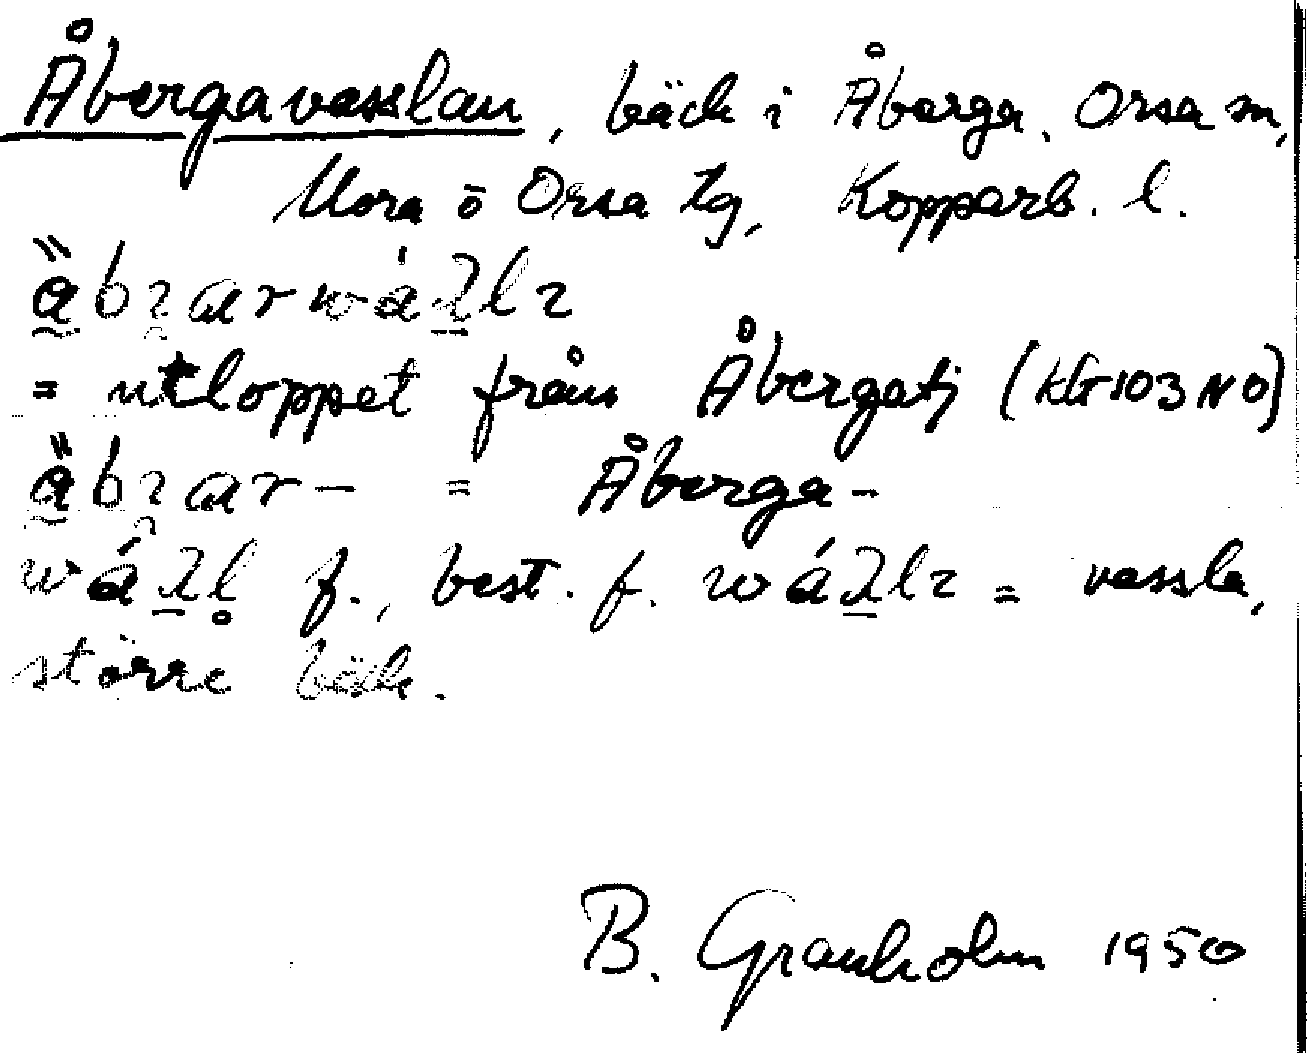 Åbergavasslan, bäck i Åberga, Orsa sn,
Mora o Orsa tg, Kopparb. l.
= utloppet från Åbergatj (KG103NO)
= Åberga-
f., best. f. = vassla,
större bäck.
B. Granholm 1950